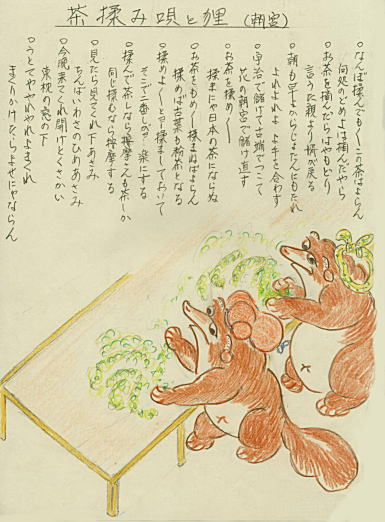 茶揉み唄と狸 (朝宮)
○なんぼ揉んでも〱この茶はよらん
何処のどめよは摘んだやら
○お茶を摘んだらはやもどり
言うた親より婿が戻る
○朝も早よからじょたんにもたれ
よれよれよと よれ手を合わす
○宇治で儲けて古端でつこて
花の朝宮で儲け直す
○お茶を揉め〱
揉まにゃ日本の茶にならぬ
○お茶をもめ〱揉まねばよらん
揉めば古葉も粉茶となる
○揉めよ〱と揉ましておいて
そこで二番しの 楽にする
○揉んで茶しなら按摩さんも茶しか
同じ揉むなら按摩する
○見たら見てくれ下あさみ
ちんばいわさのひめあさみ
○今晩来てくれ開けとくさかい
東枕の窓の下
○うとてやれやれやれよまくれ
きりかけたらよせにゃならん